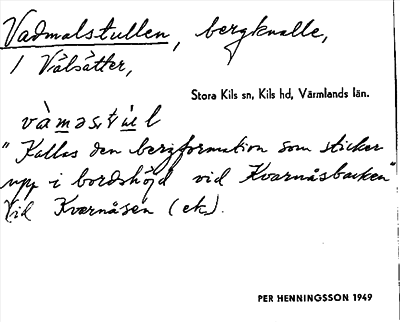 Vadmalstullen, bergknalle,
/ Välsätter,
Stora Kils sn, Kils hd, Värmlands län.
vàməstul
"Kallas den bergformation som sticker
upp i bordshöjd vid Kvarnåsbacken"
Vid Kvarnåsen (ek.).
PER HENNINGSSON 1949